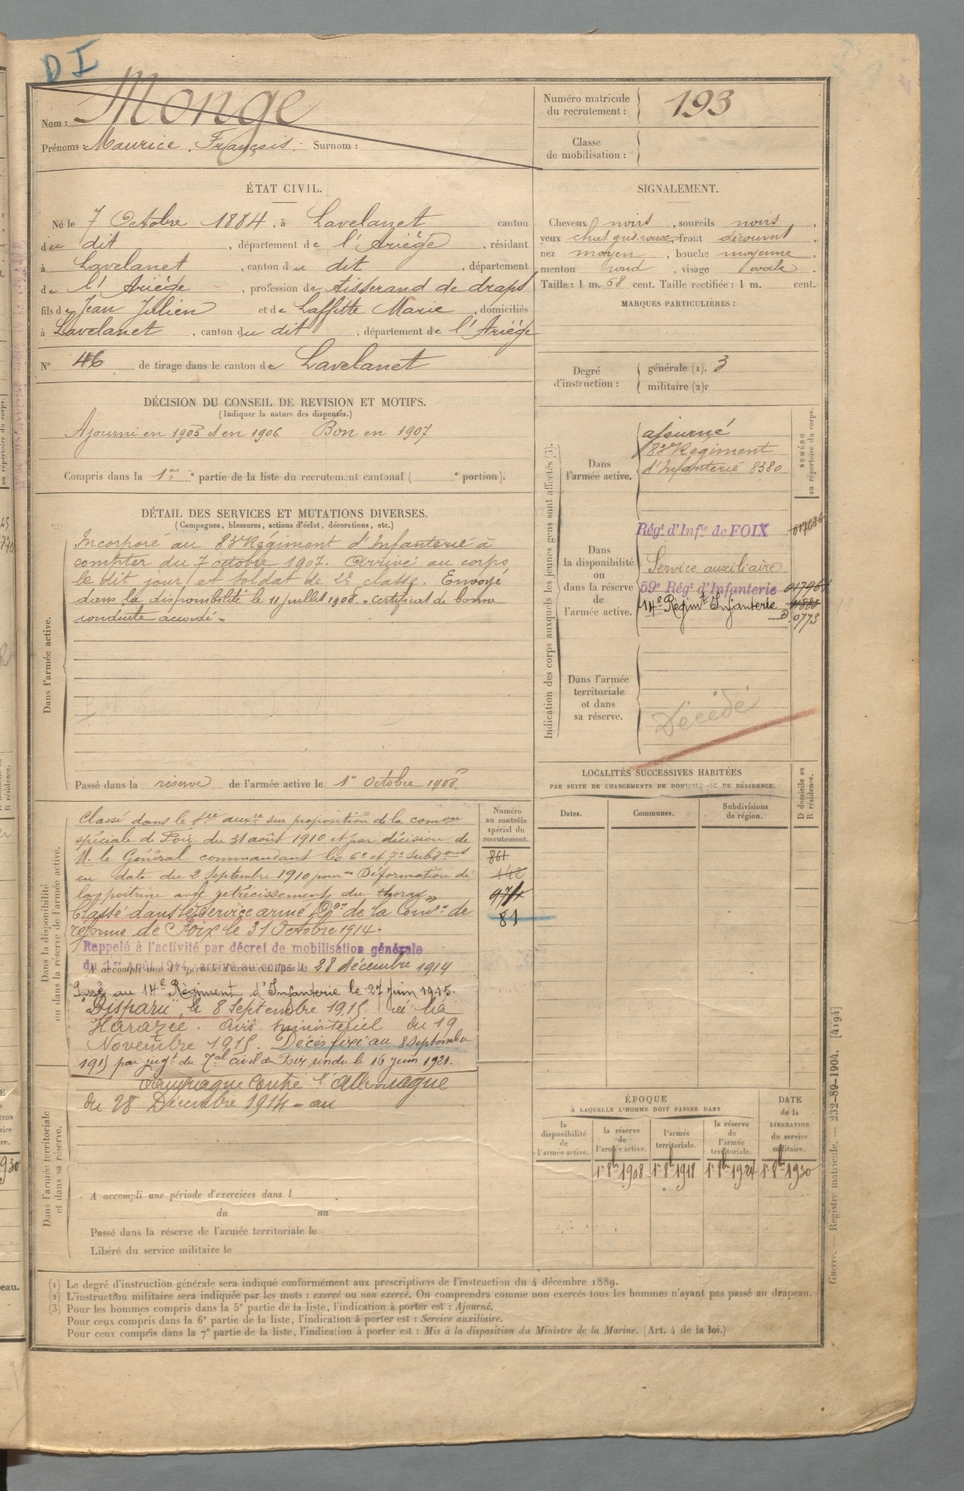 DI
Nom : Monge
Prénoms : Maurice, François. Surnom :
Numéro matricule
du recrutement : 193
Classe
de mobilisation :
ÉTAT CIVIL.
Né le 7 Octobre 1884, à Lavelanet canton
du dit, département de l'Ariège, résidant
à Lavelanet, canton du dit, département
de l'Ariège, profession de Tisserand de draps
fils de Jean Jullien et de Laffitte Marie, domiciliés
à Lavelanet, canton du dit, département de l'Ariège
N° 46 de tirage dans le canton de Lavelanet
SIGNALEMENT.
Cheveux noirs, sourcils noirs,
yeux front découvert,
nez moyen, bouche moyenne,
menton rond, visage ovale.
Taille : 1 m. 58 cent. Taille rectifiée : 1 m. cent.
MARQUES PARTICULIÈRES :
Degré
d'instruction :
générale (1). 3
militaire (2).
DÉCISION DU CONSEIL DE REVISION ET MOTIFS.
(Indiquer la nature des dispenses.)
Ajourné en 1905 et en 1906 Bon en 1907
Compris dans la 1re partie de la liste du recrutement cantonal ( e portion).
DÉTAIL DES SERVICES ET MUTATIONS DIVERSES.
(Campagnes, blessures, actions d'éclat, décorations, etc.)
Dans l'armée active.
Incorporé au 83e Régiment d'Infanterie à
compter du 7 octobre 1907. Arrivé au corps
le dit jour et soldat de 2e classe. Envoyé
dans la disponibilité le 11 juillet 1908. certificat de bonne
conduite accordé.
Passé dans la réserve de l'armée active le 1er Octobre 1908.
Indication des corps auxquels les jeunes gens sont affectés (3).
NUMÉRO
au répertoire du corps.
Dans
l'armée active.
ajourné
83e Régiment
d'Infanterie 8380
Dans
la disponibilité
ou
dans la réserve
de
l'armée active.
Régt d'Infie de FOIX
Service auxiliaire
59e Régt d'Infanterie
14e Régimt Infanterie
0773
Dans l'armée
territoriale
et dans
sa réserve.
Décédé
LOCALITÉS SUCCESSIVES HABITÉES
PAR SUITE DE CHANGEMENTS DE DOMICILE OU DE RÉSIDENCE.
Dates.
Communes.
Subdivisions
de région.
D domicile ou
R résidence.
Dans la disponibilité
ou dans la réserve de l'armée active.
Classé dans le sce auxre sur proposition de la comon
spéciale de Foix du 31 août 1910 et par décision de
M. le Général commandant les 6e et 7e Subdons
en date du 2 Septembre 1910 pour Déformation de
la poitrine avec rétrécissement du thorax
Classé dans le service armé Don de la Comon de
réforme de Foix le 31 Octobre 1914.
Rappelé à l'activité par décret de mobilisation générale
du 1er Août 1914, arrivé au corps le 28 décembre 1914
Passé au 14e Régiment d'Infanterie le 27 juin 1915.
"Disparu" le 8 Septembre 1915 à la
Harazée. Avis ministériel du 19
Novembre 1915. Décès fixé au 8 Septembre
1915 par jugt du Tal civil de Foix rendu le 16 juin 1921.
Numéro
au contrôle
spécial du
recrutement.
861
974
81
Dans l'armée territoriale
et dans sa réserve.
Campagne Contre l'Allemagne
du 28 Décembre 1914 - au
A accompli une période d'exercices dans l
du au
Passé dans la réserve de l'armée territoriale le
Libéré du service militaire le
ÉPOQUE
À LAQUELLE L'HOMME DOIT PASSER DANS
la
disponibilité
de
l'armée active.
la réserve
de
l'armée active.
l'armée
territoriale.
la réserve
de
l'armée
territoriale.
DATE
de la
LIBÉRATION
du service
militaire.
1er 8bre 1908 1er 8bre 1918 1er 8bre 1924 1er 8bre 1930
(1) Le degré d'instruction générale sera indiqué conformément aux prescriptions de l'instruction du 4 décembre 1889.
(2) L'instruction militaire sera indiquée par les mots : exercé ou non exercé. On comprendra comme non exercés tous les hommes n'ayant pas passé au drapeau.
(3) Pour les hommes compris dans la 5e partie de la liste, l'indication à porter est : Ajourné.
Pour ceux compris dans la 6e partie de la liste, l'indication à porter est : Service auxiliaire.
Pour ceux compris dans la 7e partie de la liste, l'indication à porter est : Mis à la disposition du Ministre de la Marine. (Art. 4 de la loi.)
Guerre. Registre matricule. — 232-89-1904. [4194]